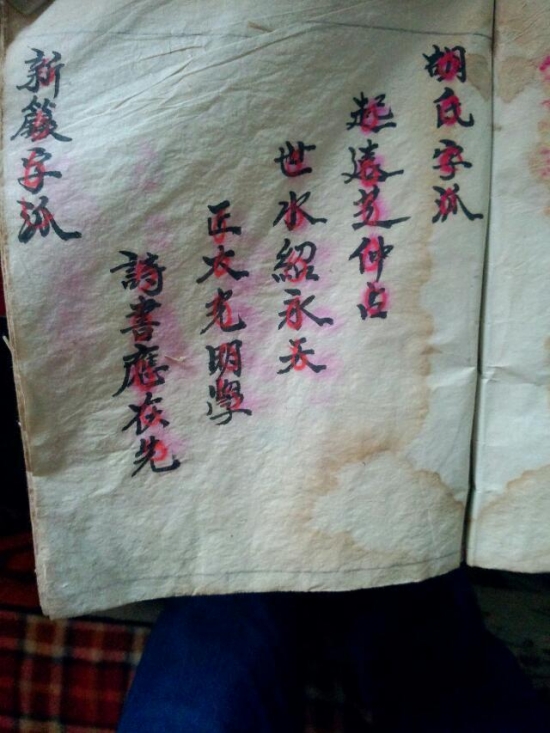 胡氏字派
起遠芝仲占
世水紹永天
正大光明學
詩書應在先
新字派